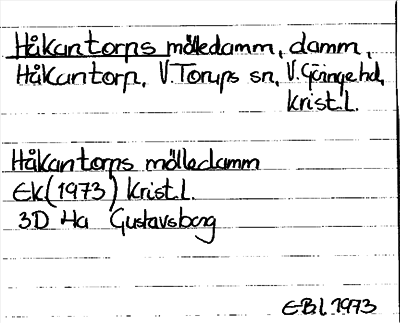 Håkantorps mölledamm, damm,
Håkantorp, V. Torups sn, V. Göinge hd,
Krist.l.
Håkantorps mölledamm
EK (1973) Krist.l.
3D Ha Gustavsborg
EBl 1973